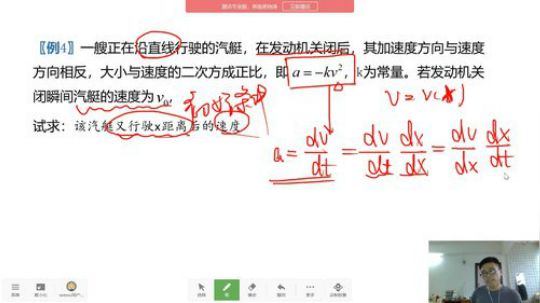 〖例4〗一艘正在沿直线行驶的汽艇，在发动机关闭后，其加速度方向与速度
方向相反，大小与速度的二次方成正比，即 a = -kv²，k为常量。若发动机关
闭瞬间汽艇的速度为 v₀，
初始条件
v = v(x)
试求：该汽艇又行驶x距离后的速度
a = dv/dt = dv/dt dx/dx = dv/dx dx/dt